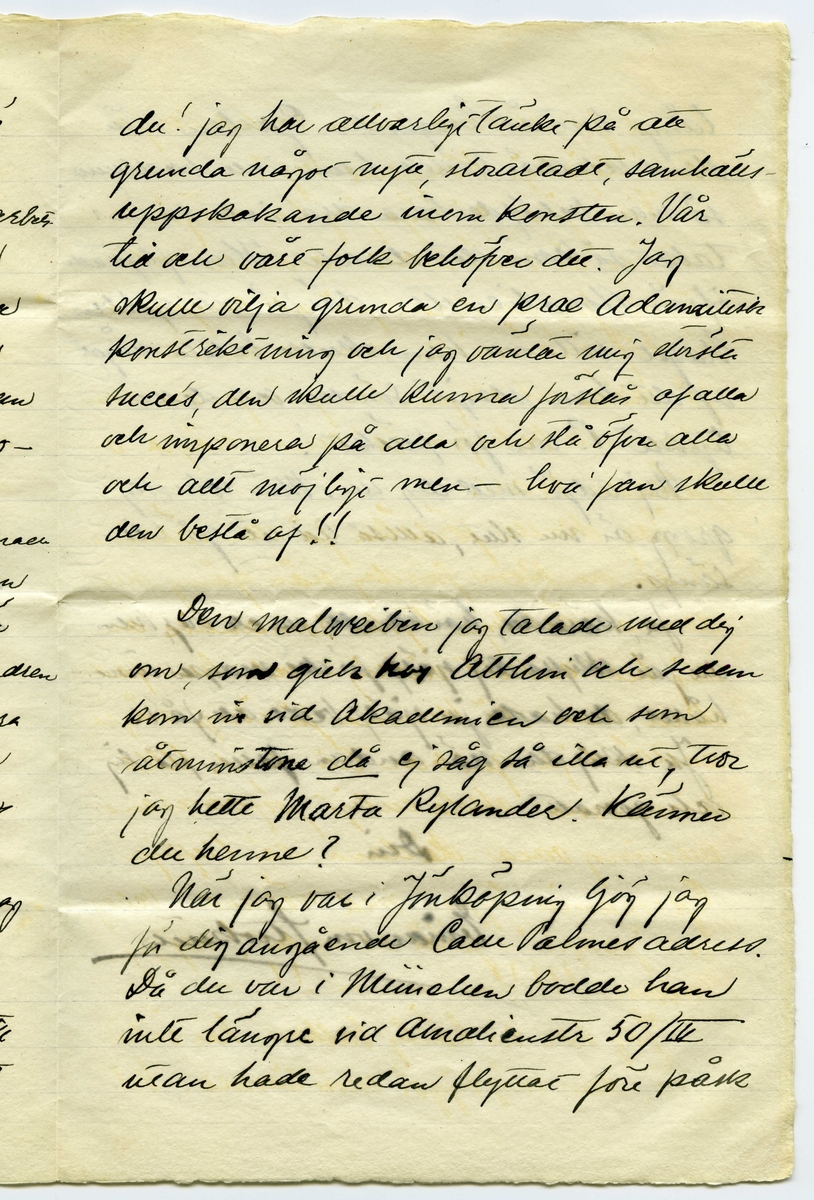 du! jag har allvarligt tänkt på att
grunda något nytt, storartadt, samhälls-
uppskakande inom konsten. Vår
tid och vårt folk behöfver det. Jag
skulle vilja grunda en prae Adamitisk
konstriktning och jag väntar mig största
succés, den skulle kunna förstås af alla
och imponera på alla och stå öfver alla
och allt möjligt men – hva' fan skulle
den bestå af!!
Den malweiben jag talade med dig
om, som gick hos Althin och sedan
kom in vid Akademien och som
åtminstone då ej såg så illa ut, tror
jag hette Marta Rylander. Känner
du henne?
När jag var i Jönköping ljög jag
för dig angående Calle Palmes adress.
Då du var i München bodde han
inte längre vid Amalienstr 50/III
utan hade redan flyttat före påsk